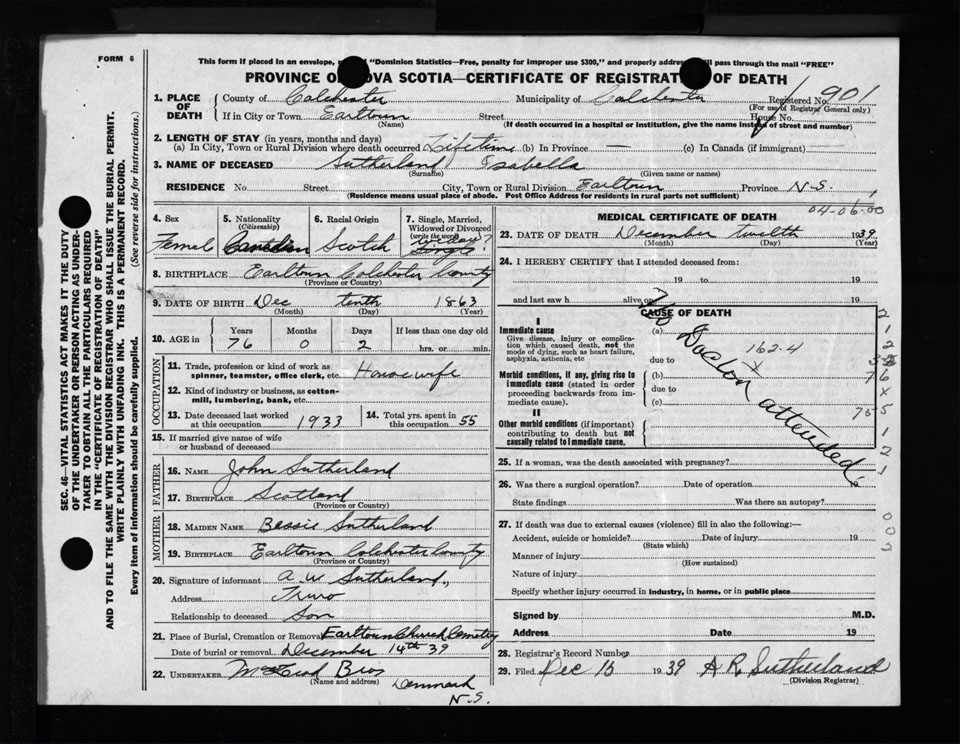 FORM 6
This form if placed in an envelope, "Dominion Statistics—Free, penalty for improper use $300," and properly address will pass through the mail "FREE"
PROVINCE OVA SCOTIA—CERTIFICATE OF REGISTRAT OF DEATH
1. PLACE OF DEATH
County of Colchester Municipality of Colchester Registered No. 901
(For use of Registrar General only)
If in City or Town Earltown Street House No.
(Name) (If death occurred in a hospital or institution, give the name instead of street and number)
2. LENGTH OF STAY (in years, months and days)
(a) In City, Town or Rural Division where death occurred Lifetime (b) In Province — (c) In Canada (if immigrant) —
3. NAME OF DECEASED Sutherland Isabella
(Surname) (Given name or names)
RESIDENCE No. Street City, Town or Rural Division Earltown Province N.S.
(Residence means usual place of abode. Post Office Address for residents in rural parts not sufficient)
04-06-00
4. Sex 5. Nationality (Citizenship) 6. Racial Origin 7. Single, Married, Widowed or Divorced (write the word)
Femal Canadian Scotch Widow? Single
8. BIRTHPLACE Earltown Colchester County
(Province or Country)
9. DATE OF BIRTH Dec tenth 1863
(Month) (Day) (Year)
10. AGE in Years Months Days If less than one day old
76 0 2 hrs. or min.
OCCUPATION
11. Trade, profession or kind of work as spinner, teamster, office clerk, etc. Housewife
12. Kind of industry or business, as cotton-mill, lumbering, bank, etc.
13. Date deceased last worked at this occupation 1933 14. Total yrs. spent in this occupation 55
15. If married give name of wife or husband of deceased
FATHER
16. NAME John Sutherland
17. BIRTHPLACE Scotland
(Province or Country)
MOTHER
18. MAIDEN NAME Bessie Sutherland
19. BIRTHPLACE Earltown Colchester County
(Province or Country)
20. Signature of informant A W Sutherland
Address Truro
Relationship to deceased Son
21. Place of Burial, Cremation or Removal Earltown Church Cemetry
Date of burial or removal December 14th 39
22. UNDERTAKER Bros
(Name and address) Denmark
N.S.
MEDICAL CERTIFICATE OF DEATH
23. DATE OF DEATH December twelth 1939
(Month) (Day) (Year)
24. I HEREBY CERTIFY that I attended deceased from:
19 to 19
and last saw h alive on 19
CAUSE OF DEATH
No Doctor attended
I
Immediate cause
Give disease, injury or complication which caused death, not the mode of dying, such as heart failure, asphyxia, asthenia, etc
(a)
162-4
x
due to
Morbid conditions, if any, giving rise to immediate cause (stated in order proceeding backwards from immediate cause).
(b)
due to
(c)
II
Other morbid conditions (if important) contributing to death but not causally related to immediate cause.
25. If a woman, was the death associated with pregnancy?
26. Was there a surgical operation? Date of operation
State findings Was there an autopsy?
27. If death was due to external causes (violence) fill in also the following:—
Accident, suicide or homicide? Date of injury 19
(State which)
Manner of injury
(How sustained)
Nature of injury
Specify whether injury occurred in industry, in home, or in public place
Signed by M.D.
Address Date 19
28. Registrar's Record Number
29. Filed Dec 15 1939 A R Sutherland
(Division Registrar)
SEC. 46—VITAL STATISTICS ACT MAKES IT THE DUTY
OF THE UNDERTAKER OR PERSON ACTING AS UNDER-
TAKER TO OBTAIN ALL THE PARTICULARS REQUIRED
IN THE "CERTIFICATE OF REGISTRATION OF DEATH"
AND TO FILE THE SAME WITH THE DIVISION REGISTRAR WHO SHALL ISSUE THE BURIAL PERMIT.
WRITE PLAINLY WITH UNFADING INK. THIS IS A PERMANENT RECORD.
Every item of information should be carefully supplied. (See reverse side for instructions.)